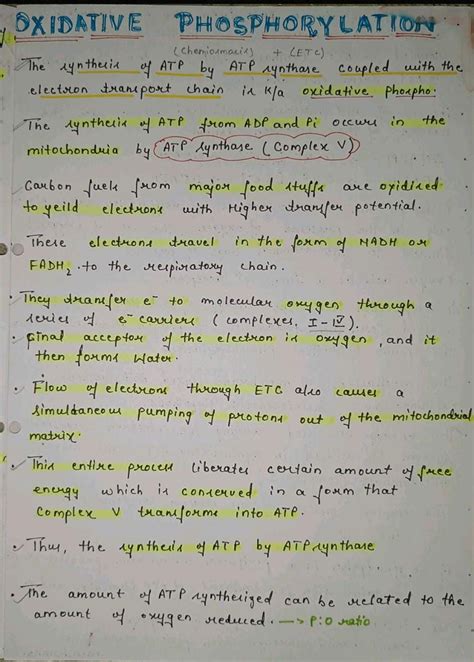 OXIDATIVE PHOSPHORYLATION
(Chemiosmosis) + (ETC)
The synthesis of ATP by ATP synthase coupled with the
electron transport chain is K/a oxidative phospho.
The synthesis of ATP from ADP and Pi occurs in the
mitochondria by ATP synthase (Complex V)
Carbon fuels from major food stuffs are oxidised
to yeild electrons with Higher transfer potential.
These electrons travel in the form of NADH or
FADH2 to the respiratory chain.
• They transfer e⁻ to molecular oxygen through a
series of e⁻ carriers (complexes, I-IV).
• final acceptor of the electron is oxygen, and it
then forms Water.
• Flow of electrons through ETC also causes a
simultaneous pumping of protons out of the mitochondrial
matrix.
This entire process liberates certain amount of free
energy which is conserved in a form that
Complex V transforms into ATP.
• Thus, the synthesis of ATP by ATP synthase
• The amount of ATP synthesized can be related to the
amount of oxygen reduced. → P:O ratio